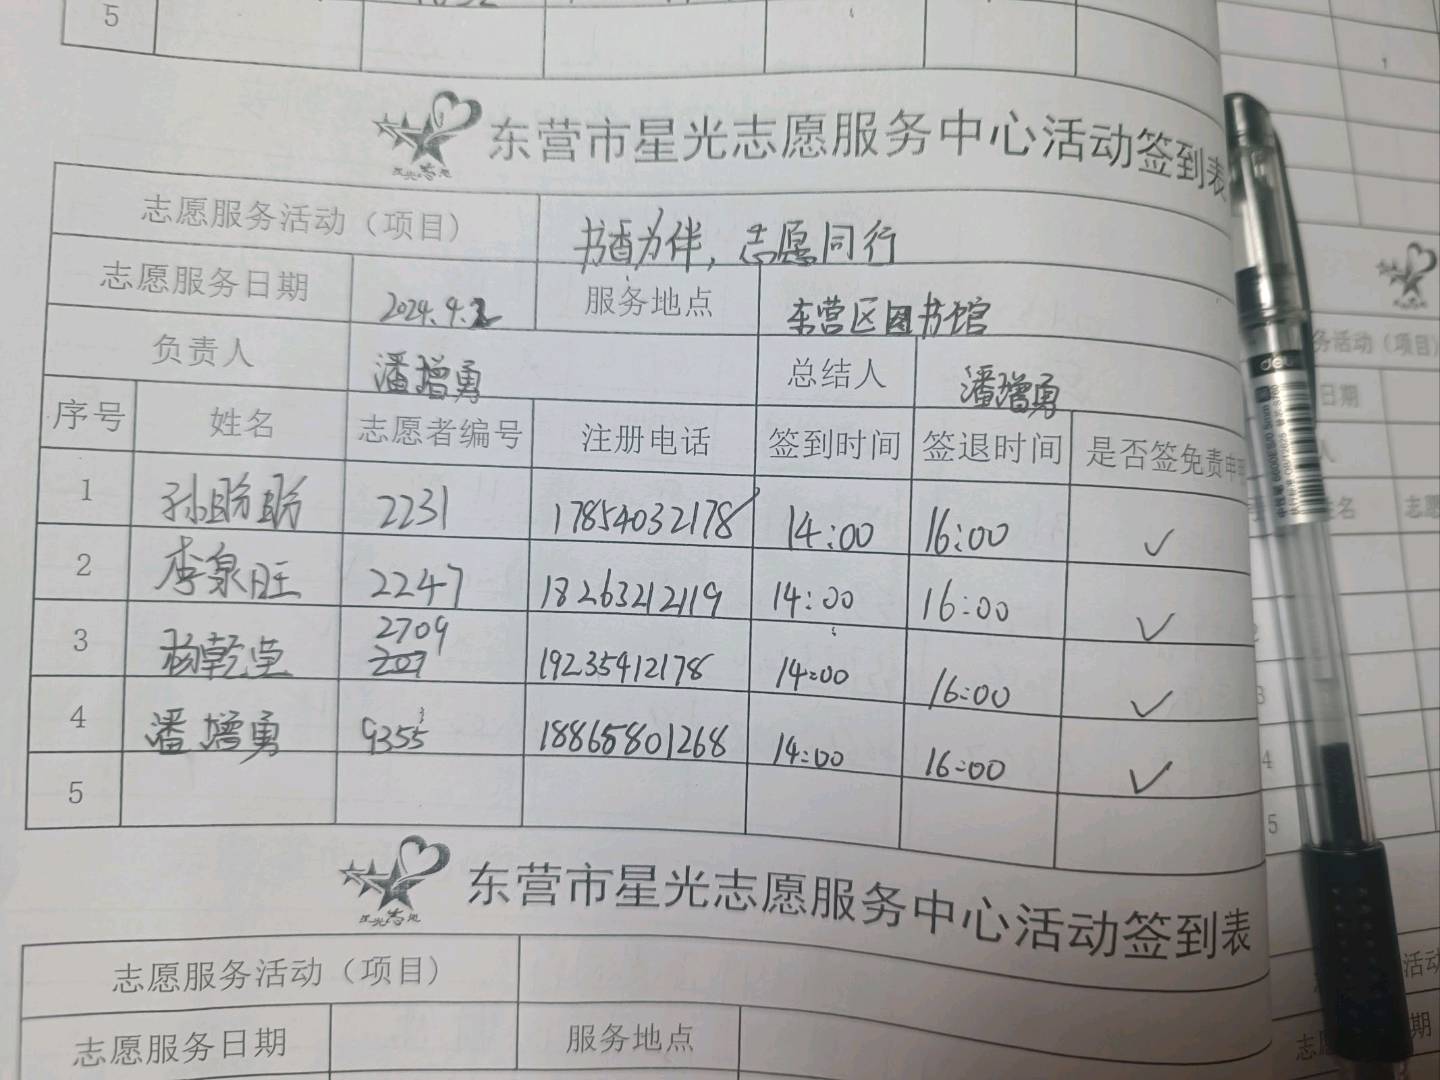 5
东营市星光志愿服务中心活动签到表
志愿服务活动（项目） 书香为伴，志愿同行
志愿服务日期 2024.9.2 服务地点 东营区图书馆
负责人 潘增勇 总结人 潘增勇
序号 姓名 志愿者编号 注册电话 签到时间 签退时间 是否签免责申明
1 孙盼盼 2231 17854032178 14:00 16:00 ✓
2 李泉旺 2247 18263212119 14:00 16:00 ✓
3 杨乾堂 2709 19235412178 14:00 16:00 ✓
4 潘增勇 9355 18865801268 14:00 16:00 ✓
5
东营市星光志愿服务中心活动签到表
志愿服务活动（项目）
志愿服务日期 服务地点
务活动（项目）
日期
人
姓名 志愿
3
4
5
活动
期